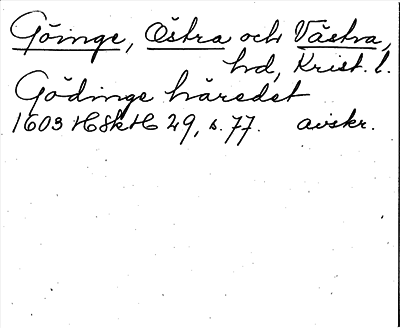 Göinge, Östra och Västra,
hd, Krist. l.
Gödinge häredet
1603 HSkH 29, s. 77. avskr.